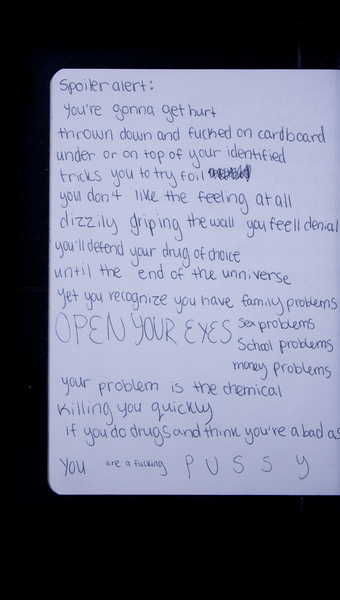 Spoiler alert:
you're gonna get hurt
thrown down and fucked on cardboard
under or on top of your identified
tricks you to try foil
you don't like the feeling at all
dizzily griping the wall you feell denial
you'll defend your drug of choice
until the end of the unniverse
yet you recognize you have family problems
OPEN YOUR EYES sex problems
School problems
money problems
your problem is the chemical
killing you quickly
If you do drugs and think you're a bad as
you are a fucking P U S S Y